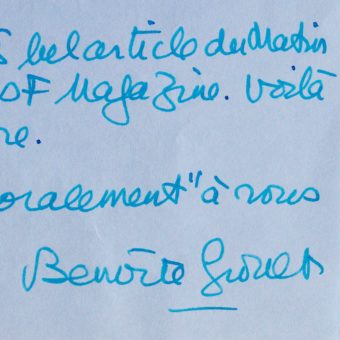 bel article du Matin
OF Magazine. Voilà
re.
oralement" à vous
Benoîte Groult